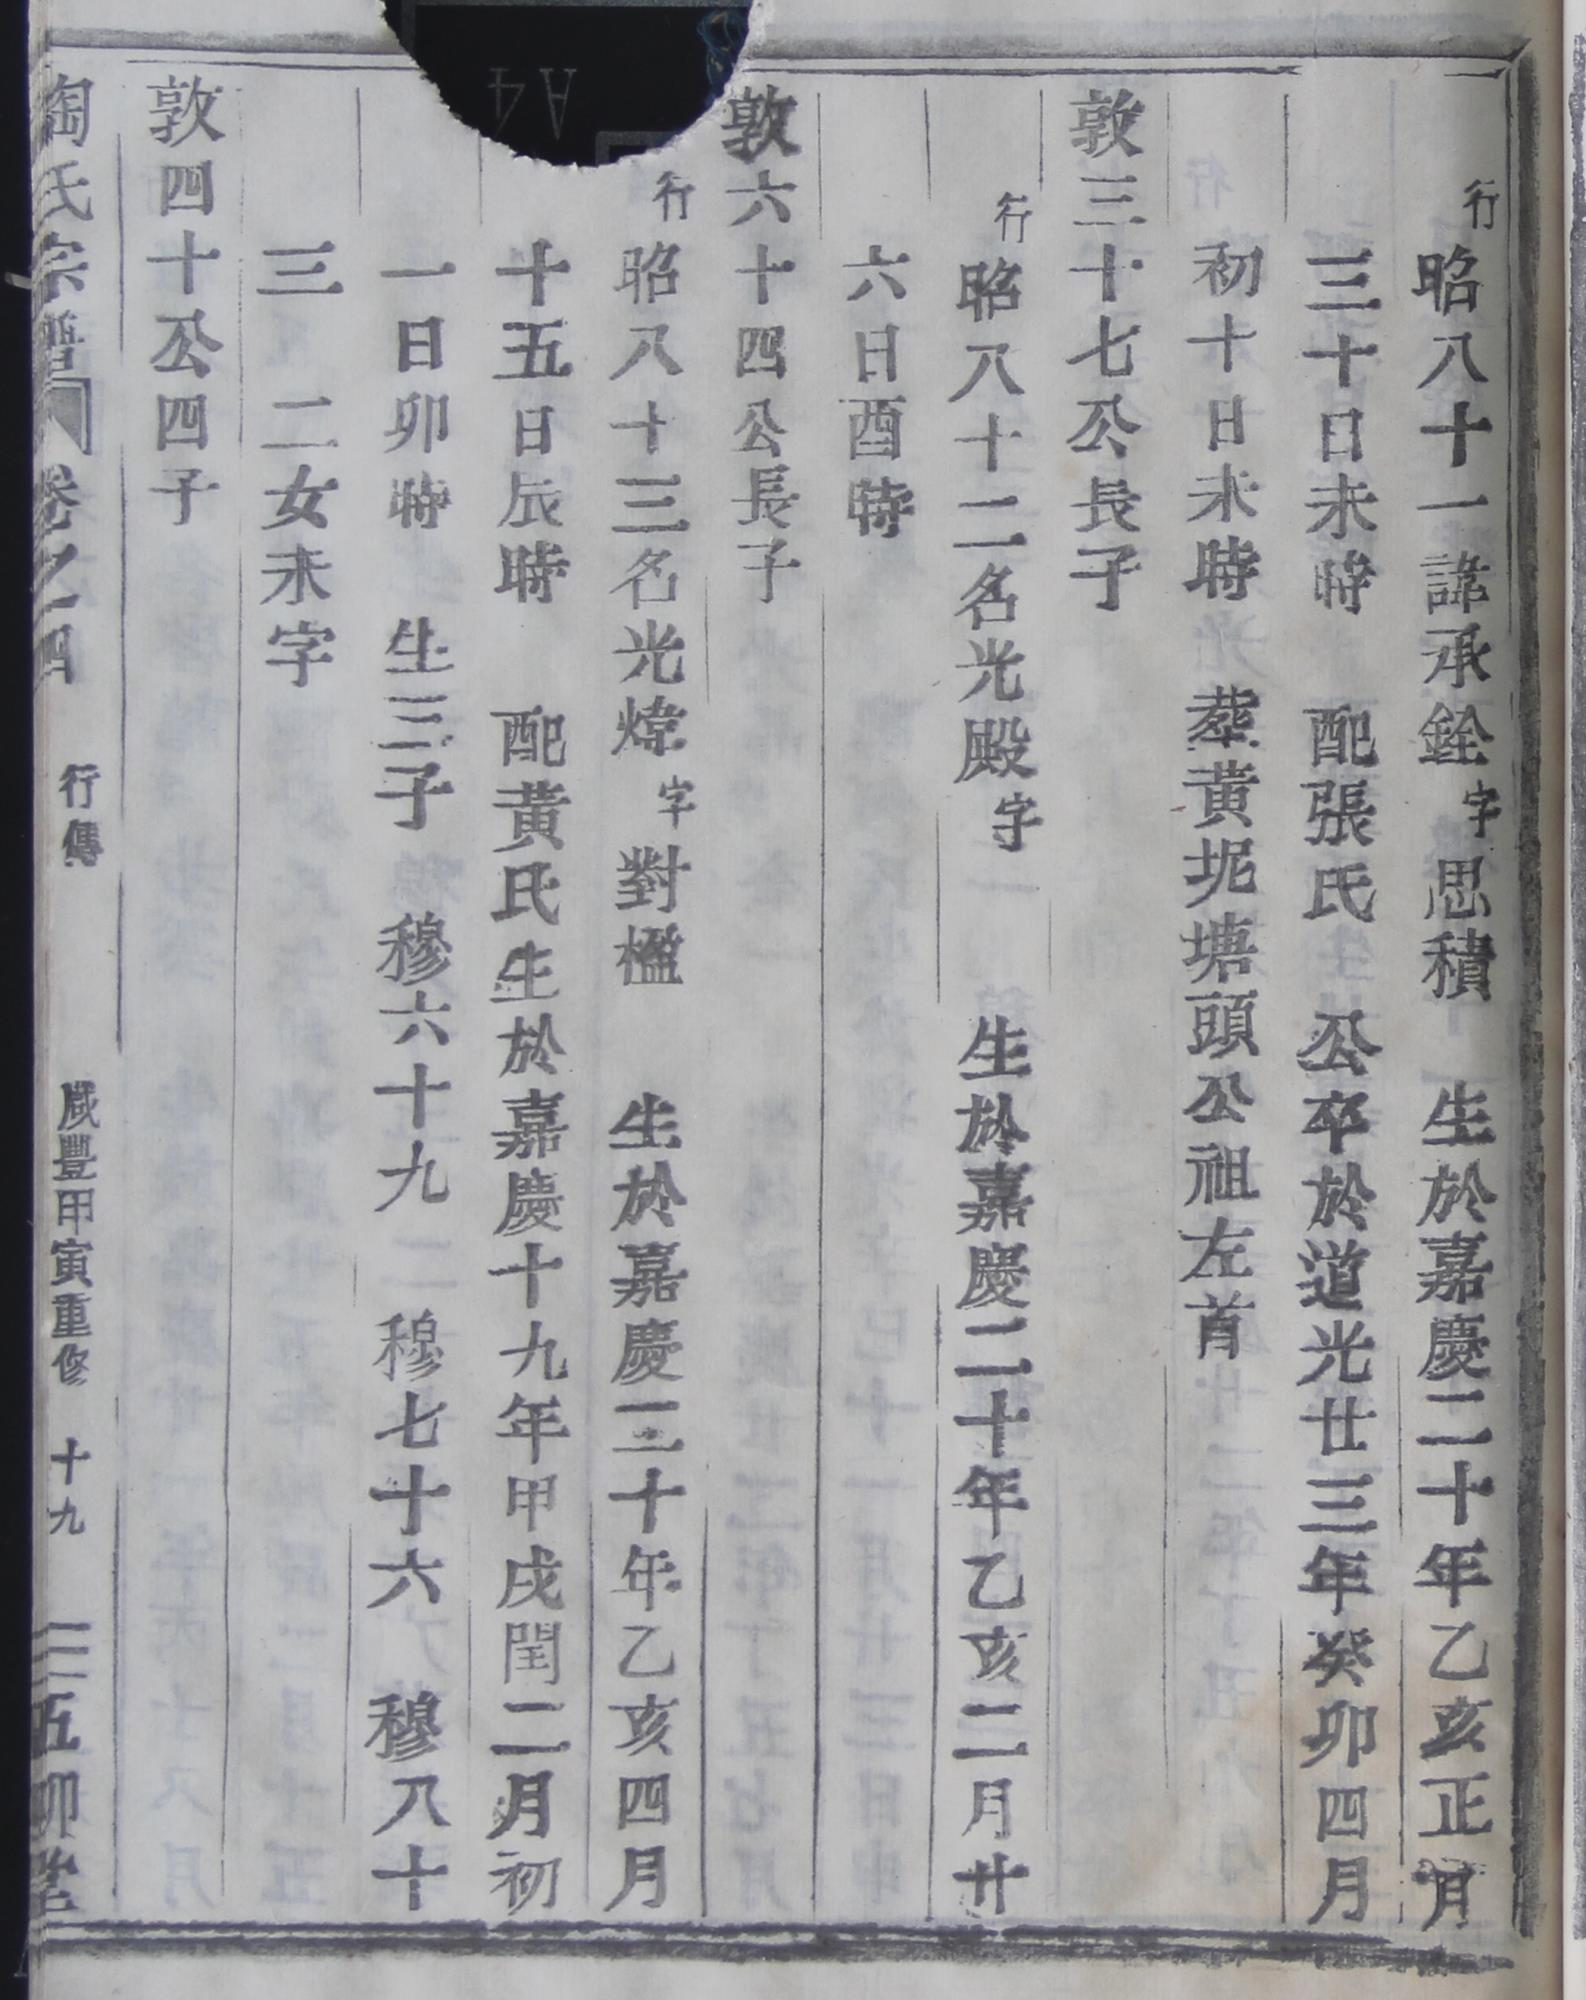 行昭八十一諱承銓字思積 生於嘉慶二十年乙亥正月
三十日未時 配張氏 公卒於道光廿三年癸卯四月
初十日未時 葬黃坭塘頭公祖左首
敦三十七公長子
行昭八十二名光殿字 生於嘉慶二十年乙亥二月廿
六日酉時
敦六十四公長子
行昭八十三名光煒字對楹 生於嘉慶二十年乙亥四月
十五日辰時 配黃氏生於嘉慶十九年甲戌閏二月初
一日卯時 生三子 穆六十九 穆七十六 穆八十
三 二女未字
敦四十公四子
陶氏宗譜 卷之四 行傳 咸豐甲寅重修 十九 五柳堂
A4